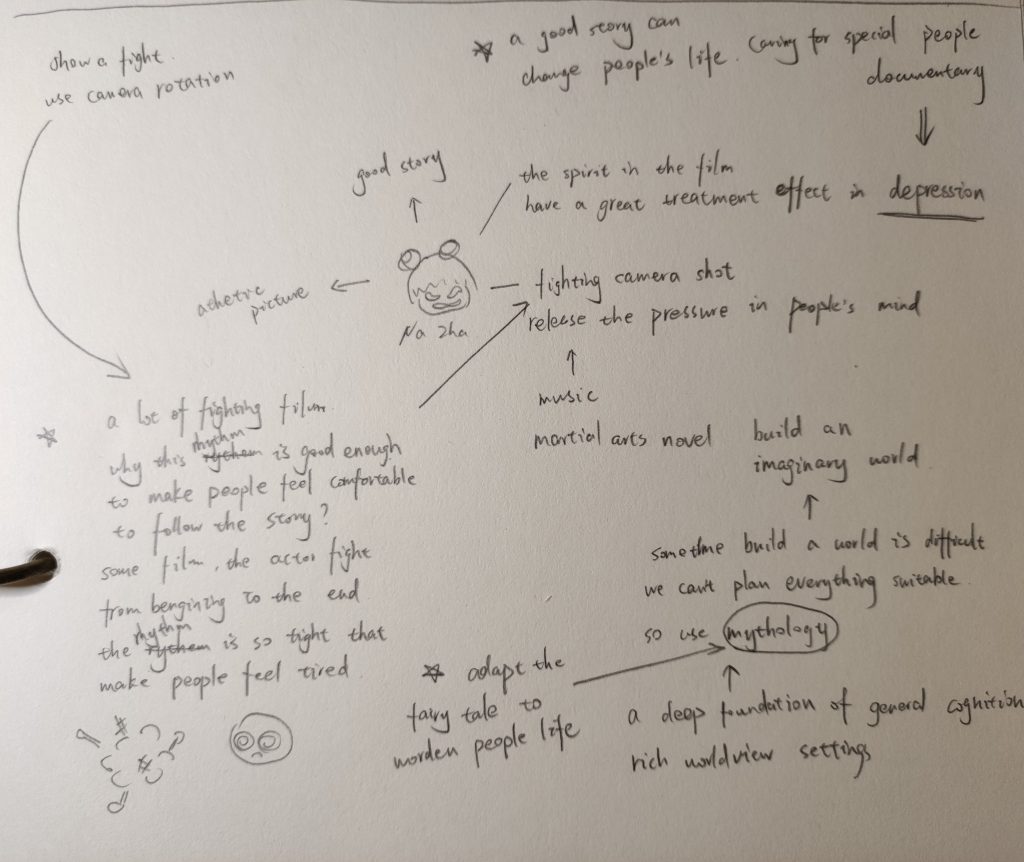 show a fight.
use camera rotation
☆ a good story can
change people's life. Caring for special people
documentary
good story
the spirit in the film
have a great treatment effect in depression
athetic
picture
Na Zha
fighting camera shot
release the pressure in people's mind
music
martial arts novel
build an
imaginary world
☆ a lot of fighting film.
why this rythem rhythm is good enough
to make people feel comfortable
to follow the story?
some film, the actor fight
from bengining to the end
the rythem rhythm is so tight that
make people feel tired.
sometime build a world is difficult
we can't plan everything suitable.
so use mythology
☆ adapt the
fairy tale to
morden people life
a deep foundation of general cognition
rich worldview settings